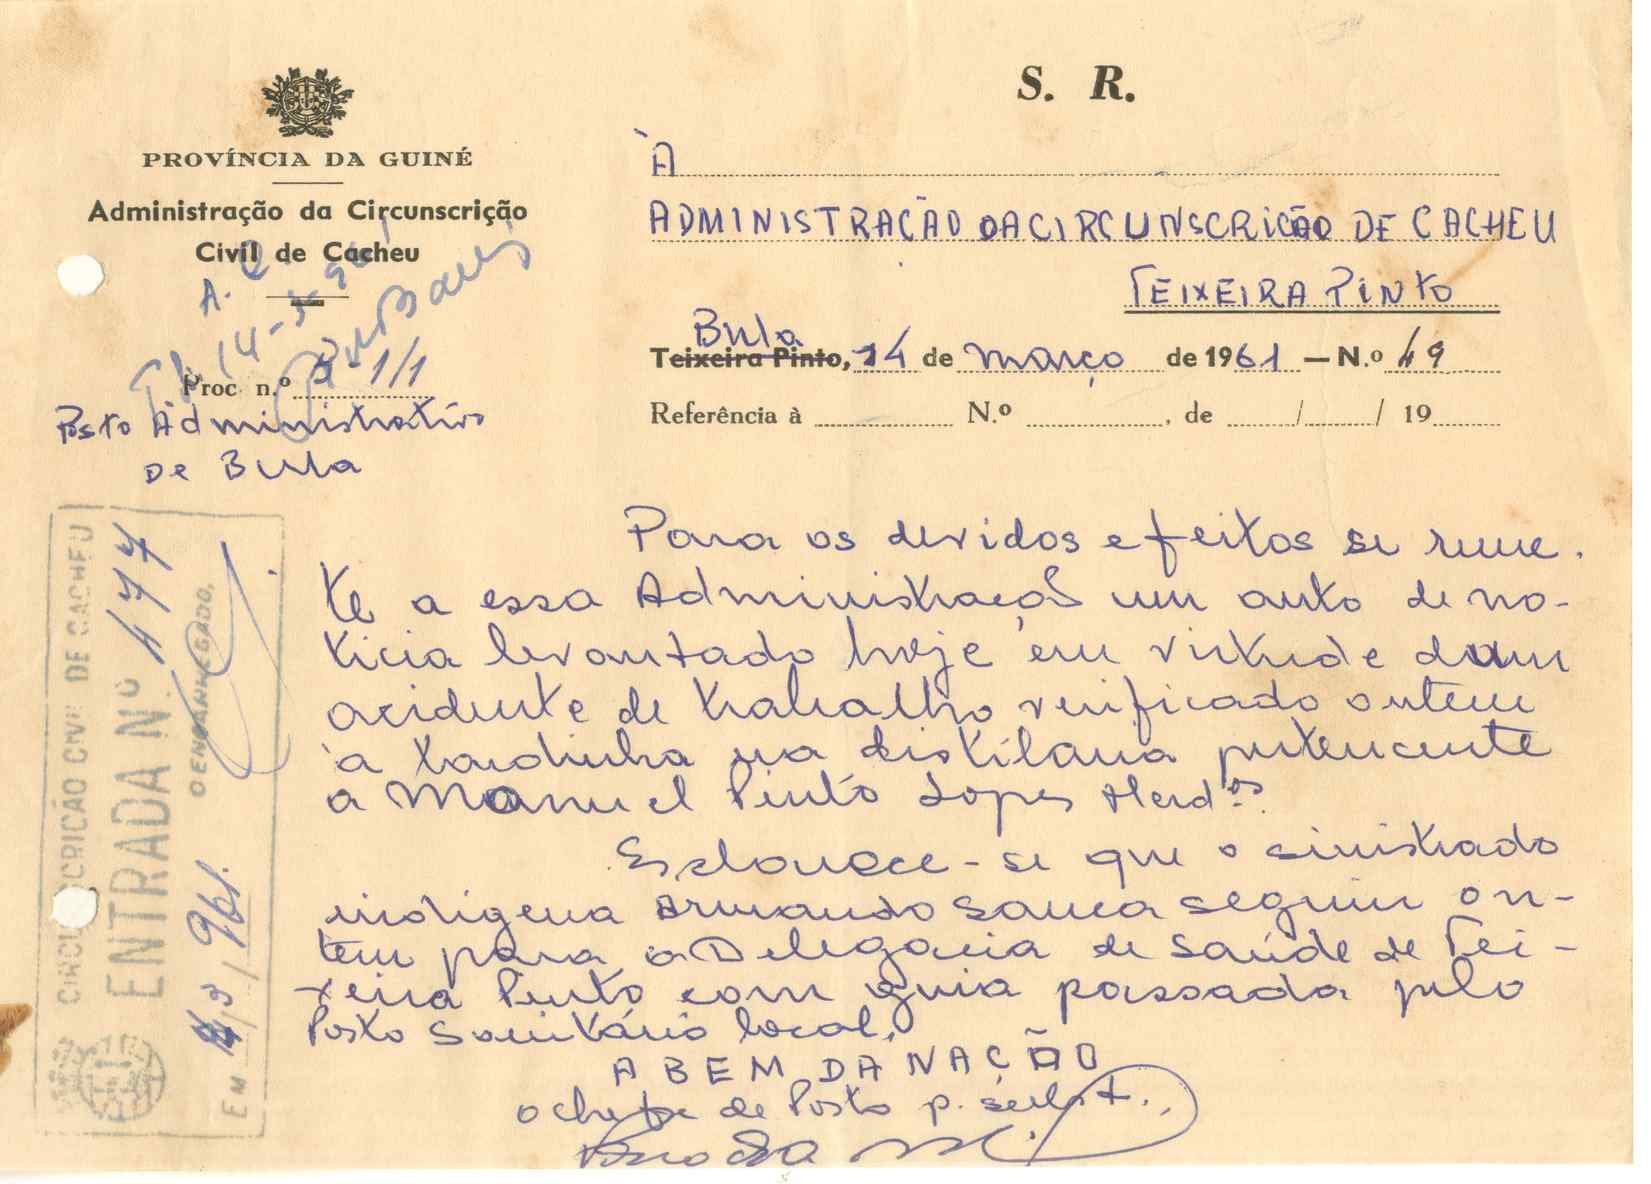 S. R.
PROVÍNCIA DA GUINÉ
Administração da Circunscrição
Civil de Cacheu
Proc n.º 1/1
Posto Administrativo
de Bula
À
ADMINISTRAÇÃO DA CIRCUNSCRIÇÃO DE CACHEU
TEIXEIRA PINTO
Bula
Teixeira Pinto, 14 de março de 1961 — N.º 49
Referência à N.º , de / / 19
Para os devidos efeitos se reme-
te a essa Administração um auto de no-
tícia levantado hoje em virtude dum
acidente de trabalho verificado ontem
à tardinha na distilaria pertencente
a Manuel Pinto Lopes Herd.os
Esclarece-se que o sinistrado
indigena Armando Sanca seguiu on-
tem para a Delegacia de Saúde de Tei-
xeira Pinto com guia passada pelo
Posto Sanitário local.
A BEM DA NAÇÃO
O chefe de Posto p. subst.,
CIRCUNSCRIÇÃO CIVIL DE CACHEU
ENTRADA N.º 477
O ENCARREGADO,
Em 14/3/961.